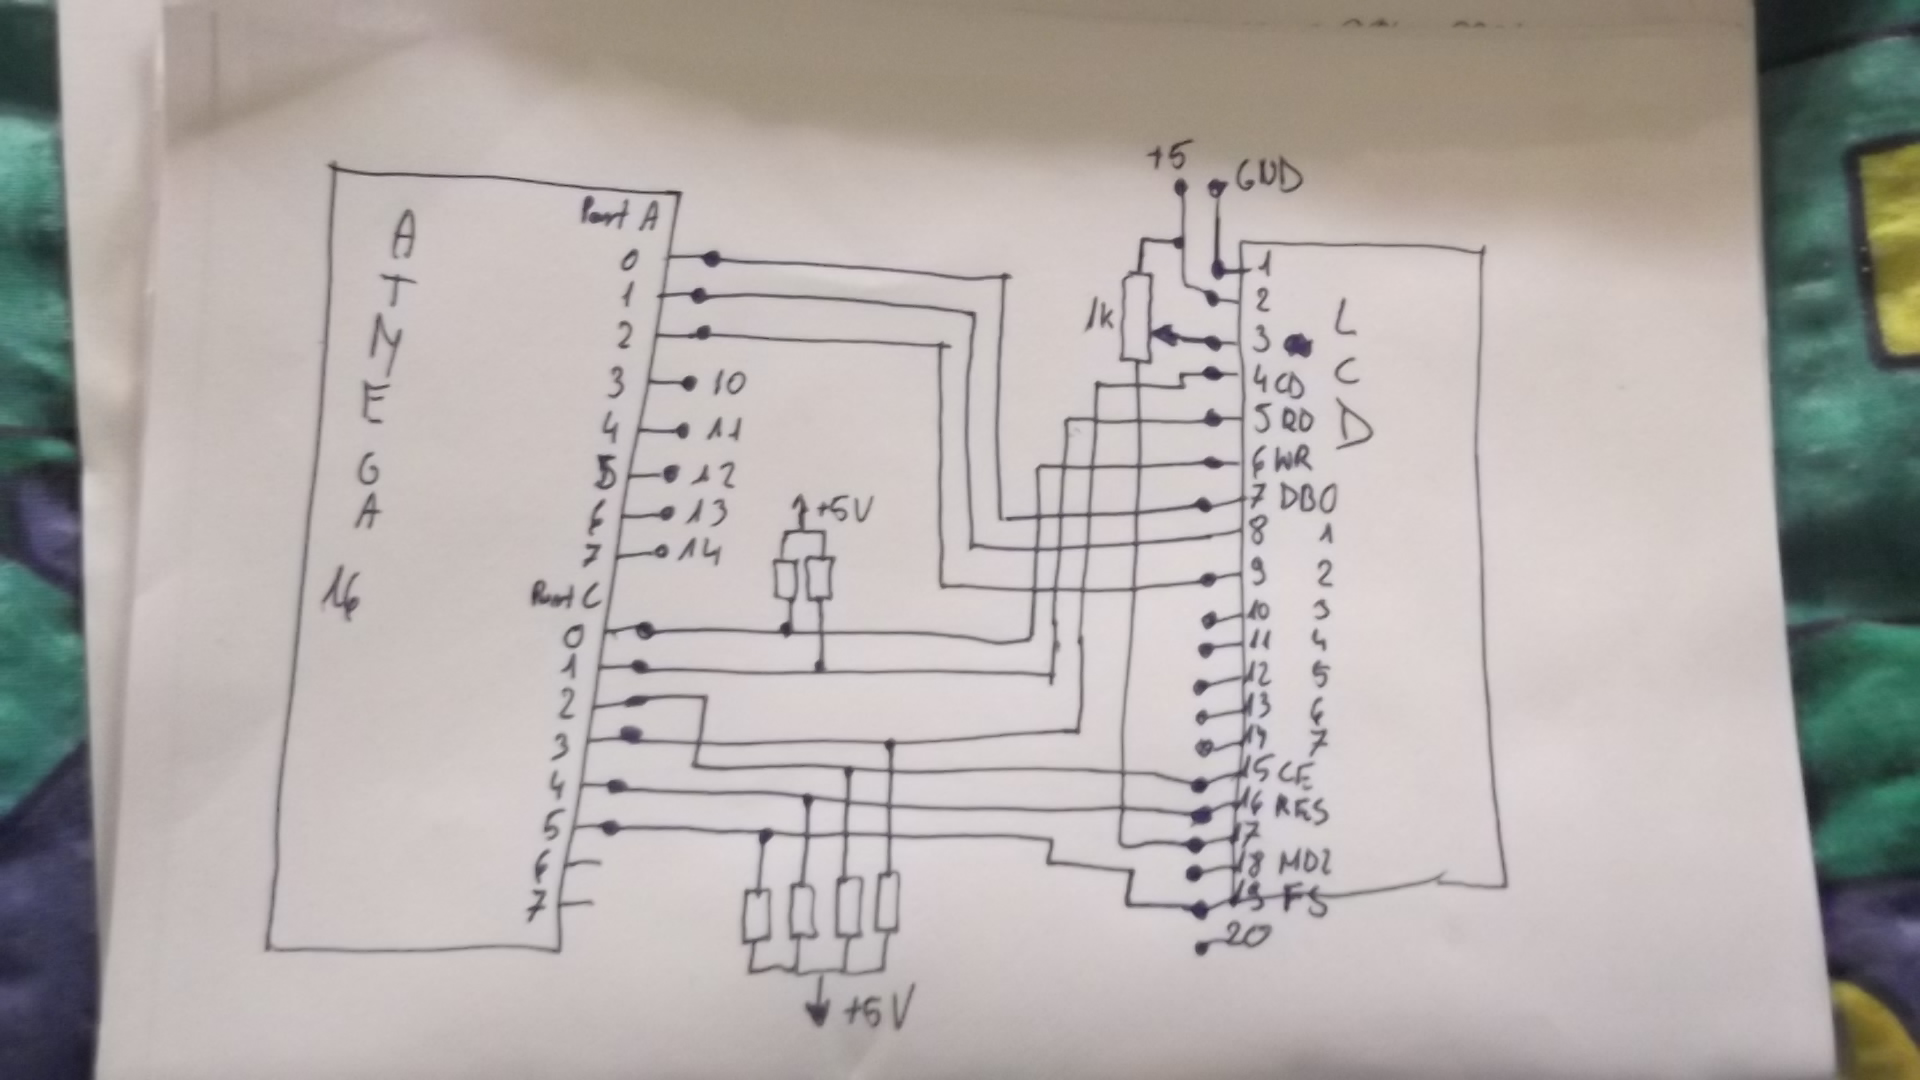 ATMEGA
16
Port A
0
1
2
3 10
4 11
5 12
6 13
7 14
Port C
0
1
2
3
4
5
6
7
+5V
+5V
+5 GND
1k
LCD
1
2
3
4 CD
5 RD
6 WR
7 DB0
8 1
9 2
10 3
11 4
12 5
13 6
14 7
15 CE
16 RES
17
18 MD2
19 FS
20